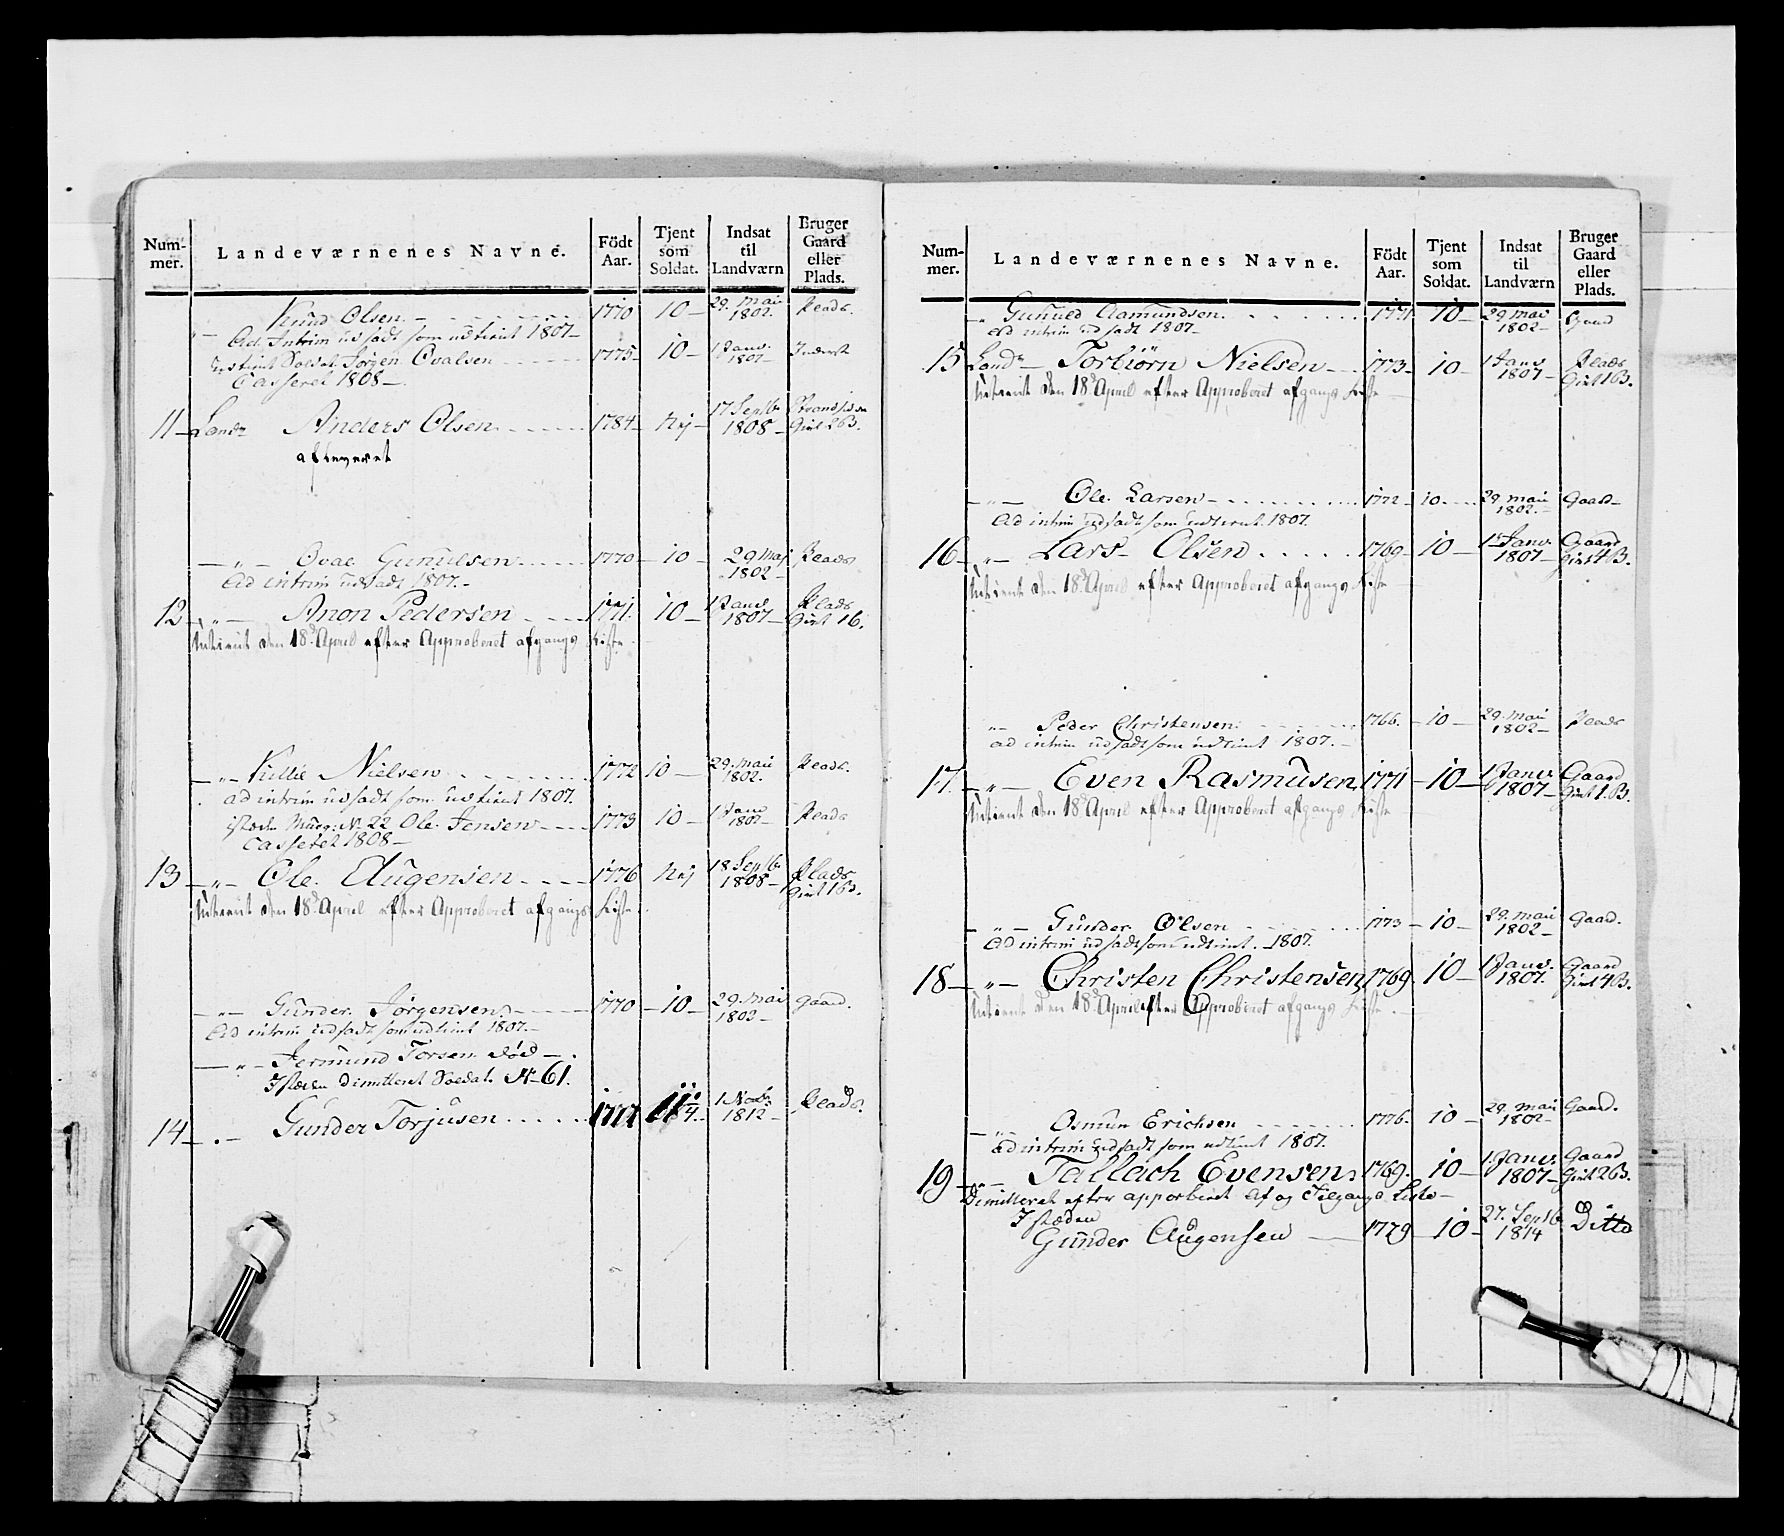 Num- mer. Landeværnenes Navne. Födt Aar. Tjent som Soldat. Indsat til Landværn Bruger Gaard eller Plads.
— Knud Olsen 1770 10 — 29. Mai 1802. Plads.
Ad. Intrim udsadt som udtient 1807 —
udtient Soldat Jörgen Ovalsen 1775 — 10 — 1 Janv. 1807 — Inderst
Casseret 1808 —
11 — Land: Anders Olsen 1784 — Nej — 17 Septb. 1808 — Strandsidden Givt 2 B.
afleveret
— „ — Ovae Gunulsen 1770 — 10 — 29 Maj 1802 — Plads
Ad intrim udsadt 1807. —
12 — „ — Anon Pedersen 1771. 10 — 1 Janv. 1807 — Plads Givt 1 b.
Udtient den 18d April efter Approberet afgangs Liste
— „ — Killie Nielsen 1772 10 — 29. Mai 1802. Plads.
ad intrim udsadt som udtient 1807.
istedn Nr: 22 Ole Jensen 1773 10 — 1 Janv 1802 — Plads
Casseret 1808 —
13 — „ — Ole Augensen 1776 Nej 18 Septb. 1808 — Plads Givt 1 B.
Udtient den 18d April efter Approberet afgangs Liste
— „ — Gunder Jörgensen 1770 — 10 — 29. Mai 1802 — Gaard.
Ad intrim udsadt som udtient 1807. —
— „ — Jermund Torsen död —
Isteden Dimitteret Soldat N 61.
14 — „ — Gunder Torjusen 1777 11 1/4 — 1 Novb: 1812 — Plads.
Num- mer. Landeværnenes Navne. Födt Aar. Tjent som Soldat. Indsat til Landværn Bruger Gaard eller Plads.
— „ Gunuld Aamundsen 1771 10 — 29 Mai 1802 —
Ad intrim udsadt 1807 —
15 Land: — Torbiörn Nielsen 1773 — 10 — 1 Janv. 1807 — Plads Givt 1 B.
Udtient den 18d April efter Approberet afgangs Liste —
— „ — Ole Larsen 1772 — 10 29. Mai 1802. — Gaard —
Ad intrim udsadt som udtient. 1807.
16 — „ — Lars Olsen 1769 — 10 — 1 Janv. 1807 — Gaard Givt 4 B.
Udtient den 18d April efter Approberet afgangs Liste
„ — Peder Christensen 1766. — 10 — 29. Mai 1802 — Plads
ad intrim udsadt som udtient 1807. —
17. — „ — Even Rasmusen 1771 — 10 — 1 Janv. 1807 — Gaard Givt 1. B.
Udtient den 18d April efter Approberet afgangs Liste —
— „ — Gunder Olsen 1773 — 10 — 29. Mai 1802 — Gaard.
Ad intrim udsadt som udtient. 1807.
18 — „ — Christen Christensen 1769. 10 — 1 Janv. 1807. Gaard Givt 4 B.
Udtient den 18d April efter Approberet afgangs Liste. —
— „ — Osmun Erichsen 1776. 10 — 29. Mai 1802 — Gaard.
ad intrim udsadt som udtient 1807.
19 — „ — Tallach Evensen 1769. 10 — 1 Janv. 1807 — Gaard Givt 2 B.
Dimitteret efter approbert Af og Tilgangs Liste —
Isteden
Gunder Augensen — 1779 — 10 — 27. Septb. 1814 Ditto